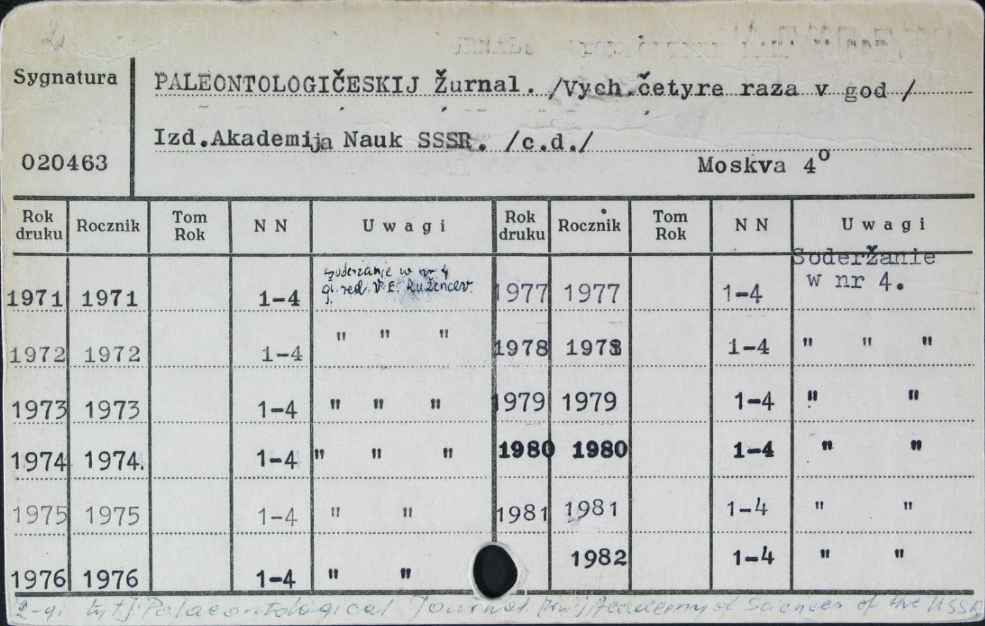 Sygnatura
PALEONTOLOGIČESKIJ Žurnal. /Vych.četyre raza v god /
Izd.Akademija Nauk SSSR. /c.d./
020463
Moskva 4°
Rok druku Rocznik Tom Rok N N Uwagi Rok druku Rocznik Tom Rok N N Uwagi
1971 1971 1-4 w nr 4 1977 1977 1-4 Soderžanie
gł. red. V.E. Ružencev w nr 4.
1972 1972 1-4 " " " 1978 1978 1-4 " " "
1973 1973 1-4 " " " 1979 1979 1-4 " "
1974 1974. 1-4 " " " 1980 1980 1-4 " "
1975 1975 1-4 " " 1981 1981 1-4 " "
1976 1976 1-4 " " 1982 1-4 " "
2-gi tyt: Palaeontological Journal Academy of Sciences of the USSR